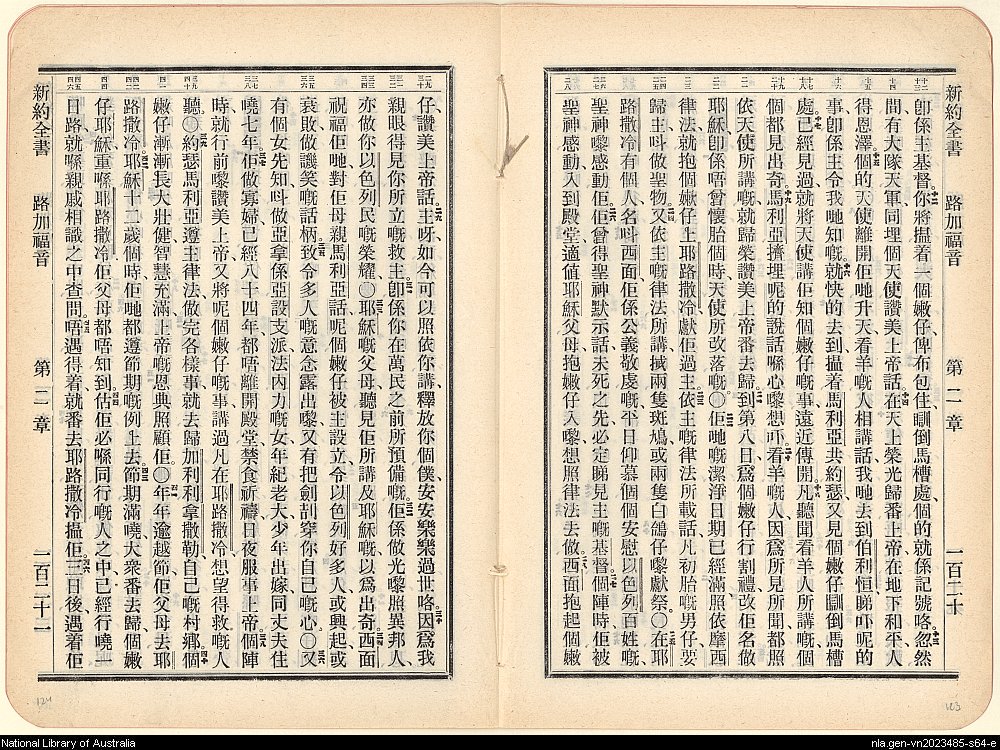 新約全書 路加福音 第二章 一百二十
卽係主基督你將搵着一個嫩仔俾布包住瞓倒馬槽處個的就係記號咯忽然
間有大隊天軍同埋個天使讚美上帝話在天上榮光歸番上帝在地下和平人
得恩澤個的天使離開佢哋升天看羊嘅人相講話我哋去到伯利恒睇吓呢的
事卽係主令我哋知嘅就快的去到搵着馬利亞共約瑟又見個嫩仔瞓倒馬槽
處已經見過就將天使講佢知個嫩仔嘅事遠近傳開凡聽聞看羊人所講嘅個
個都見出奇馬利亞擠埋呢的說話喺心嚟想吓看羊嘅人因爲所見所聞都照
依天使所講嘅就歸榮讚美上帝番去歸到第八日爲個嫩仔行割禮改佢名做
耶穌卽係唔曾懷胎個時天使所改落嘅○佢哋嘅潔淨日期已經滿照依摩西
律法就抱個嫩仔上耶路撒冷獻佢過主依主嘅律法所載話凡初胎嘅男仔要
歸主呌做聖物又依主嘅律法所講搣兩隻斑鳩或兩隻白鴿仔嚟獻祭○在耶
路撒冷有個人名呌西面佢係公義敬虔嘅平日仰慕個個安慰以色列百姓嘅
聖神嘅感動佢佢曾得聖神默示話未死之先必定睇見主嘅基督個陣時佢被
聖神感動入到殿堂適值耶穌父母抱嫩仔入嚟想照律法去做西面抱起個嫩
仔讚美上帝話主呀如今可以照依你講釋放你個僕安安樂樂過世咯因爲我
親眼得見你所立嘅救主卽係你在萬民之前所預備嘅佢係做光嚟照異邦人
亦做你以色列民嘅榮耀○耶穌嘅父母聽見佢所講及耶穌嘅以爲出奇西面
祝福佢哋對佢母親馬利亞話呢個嫩仔被主設立令以色列好多人或興起或
衰敗做譏笑嘅話柄致令多人嘅意念露出嚟又有把劍剖穿你自己嘅心○又
有個女先知呌做亞拿係亞設支派法內力嘅女年紀老大少年出嫁同丈夫住
嘵七年佢做寡婦已經八十四年都唔離開殿堂禁食祈禱日夜服事上帝個陣
時就行前嚟讚美上帝又將呢個嫩仔嘅事講過凡在耶路撒冷想望得救嘅人
聽○約瑟馬利亞遵主律法做完各樣事就去歸加利利拿撒勒自己嘅村鄉個
嫩仔漸漸長大壯健智慧充滿上帝嘅恩典照顧佢○年年逾越節佢父母去耶
路撒冷耶穌十二歲個時佢哋都遵節期嘅例上去節期滿嘵大衆番去歸個嫩
仔耶穌重喺耶路撒冷佢父母都唔知到估佢必喺同行嘅人之中已經行嘵一
日路就喺親戚相識之中查問唔遇得着就番去耶路撒冷搵佢三日後遇着佢
新約全書 路加福音 第二章 一百二十一
124
123
National Library of Australia
nla.gen-vn2023485-s64-e